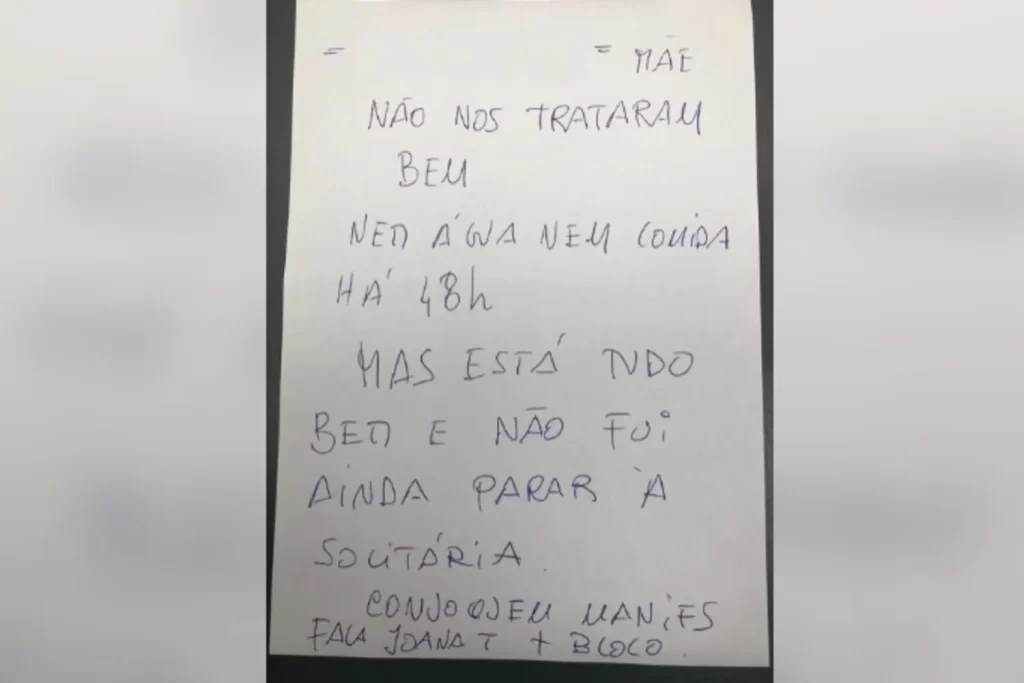 = = MÃE
NÃO NOS TRATARAM
BEM
NEM ÁGUA NEM COMIDA
HÁ 48h
MAS ESTÁ TUDO
BEM E NÃO FUI
AINDA PARAR À
SOLITÁRIA.
CONVOQUEM MANIFS
FALA JOANA T + BLOCO.